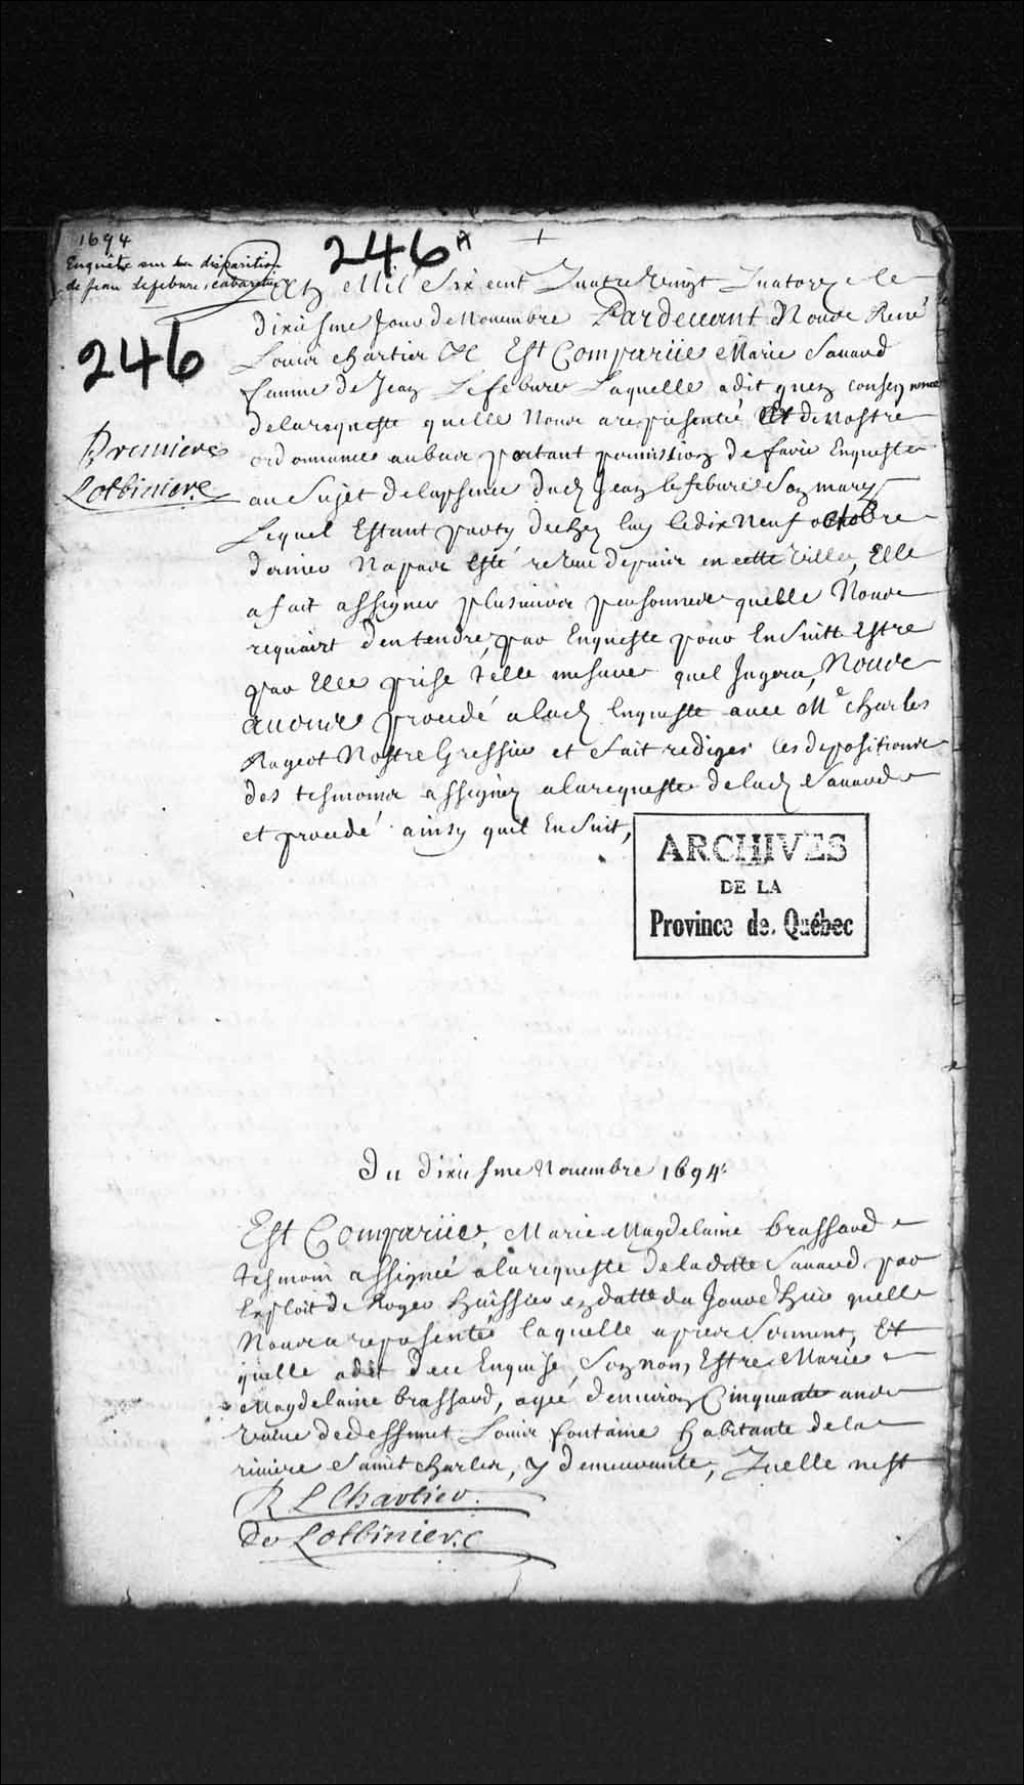 1694
Enquête sur la disparition
de Jean Lefebure, cabaretier
246 A
246
Premiere
Lotbiniere
Mil Six cent Quatre Vingt Quatorze le
dixiesme Jour de Nouembre Pardeuant Nous René
Louis chartier &c Est Comparüe Marie Sauard
femme de Jean Lefebure Laquelle a dit quen consequence
de la requeste quelle Nous a representé Et de Nostre
ordonnance au bas portant permission de faire Enqueste
au Sujet de labsence dud Jean lefebure Son mary
Lequel Estant party de chez luy le dix Neuf octobre
dernier Na pas esté reueu depuis en cette Ville, Elle
a fait assigner plusieurs personnes quelle Nous
requiert dentendre, par Enqueste pour En Suitte Estre
par Elle prise telle mesure quel Jugera, Nous
auons procedé a lad Enqueste auec Me charles
Rageot Nostre Greffier et fait rediger les depositions
des tesmoins assignez a la requeste de lad Sauard
et procedé ainsy quil En Suit,
ARCHIVES
DE LA
Province de Québec
Du dixiesme Nouembre 1694
Est Comparüe, Marie Magdelaine brassard
tesmoin assignée a la requeste de la ditte Sauard par
Exploit de Roger Huissier en datte du Jourd Huy quelle
Nous a representé laquelle apres Serment, Et
quelle a dit de ce Enquise, Son nom, Estre Marie
Magdelaine brassard, agée denuiron Cinquante ans
veuue de deffunct Louis fontaine habitante de la
riuiere Saint charles, y demeurante, Quelle nest
R L Chartier
De Lotbiniere